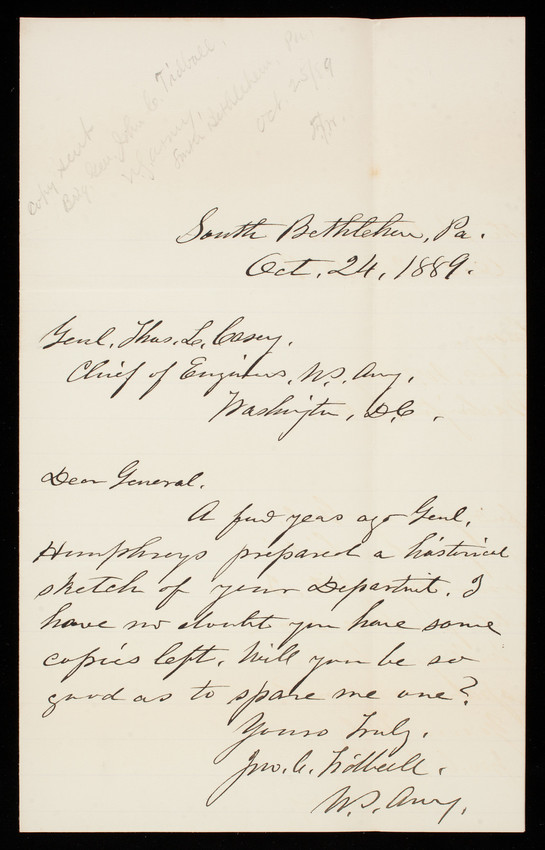 Copy sent
Brig. Gen John C. Tidball,
U.S. Army,
South Bethlehem Pa.
Oct. 25/89
South Bethlehem, Pa.
Oct. 24, 1889.
Genl. Thos. L. Casey.
Chief of Engineers, U.S. Army.
Washington, D.C.
Dear General.
A few years ago Genl.
Humphreys prepared a historical
sketch of your Department. I
have no doubt you have some
copies left. Will you be so
good as to spare me one?
Yours Truly.
Jno. C. Tidball.
U.S. Army.